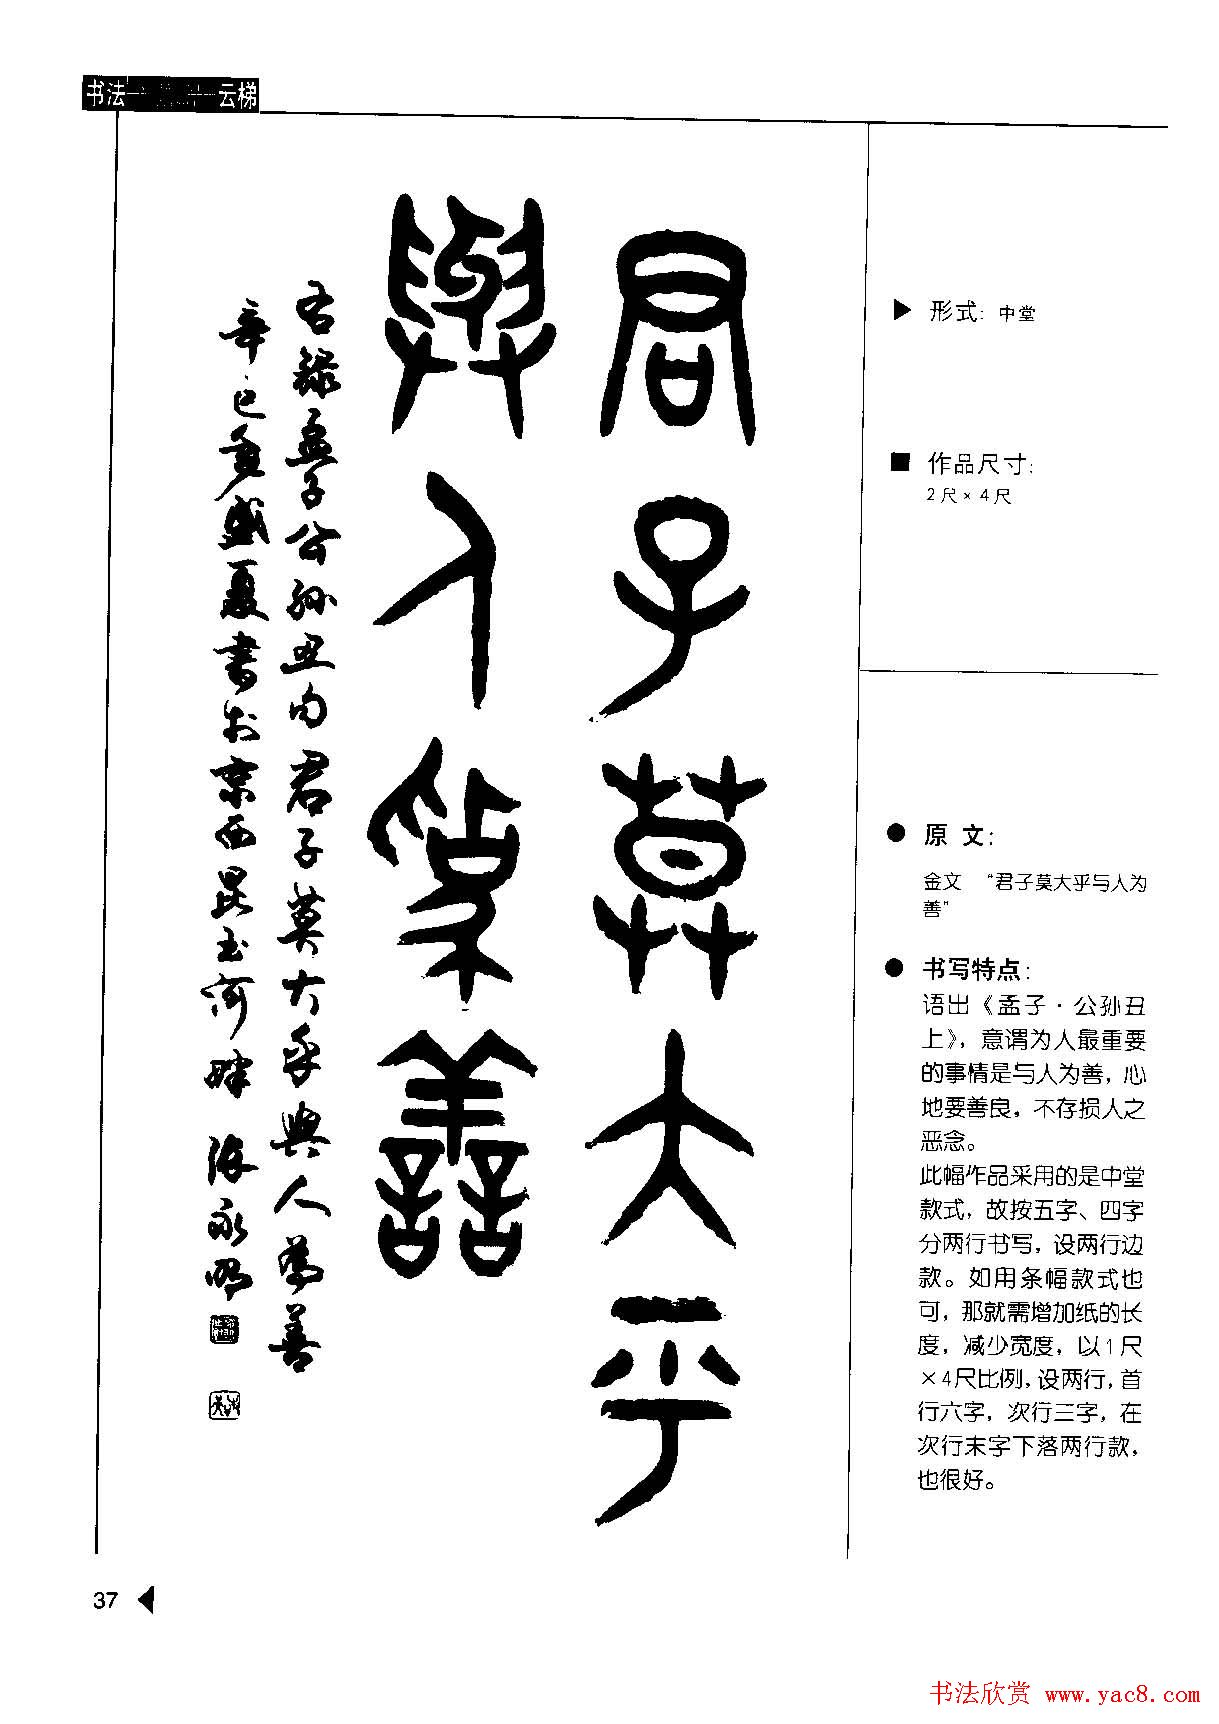 书法
云梯
君子莫大乎
與人為善
右録孟子公孙丑句君子莫大乎與人為善
辛巳年盛夏書於京西昆玉河畔 张永明
▶ 形式: 中堂
■ 作品尺寸:
2尺×4尺
● 原 文:
金文 “君子莫大乎与人为
善”
● 书写特点:
语出《孟子·公孙丑
上》，意谓为人最重要
的事情是与人为善，心
地要善良，不存损人之
恶念。
此幅作品采用的是中堂
款式，故按五字、四字
分两行书写，设两行边
款。如用条幅款式也
可，那就需增加纸的长
度，减少宽度，以1尺
×4尺比例，设两行，首
行六字，次行三字，在
次行末字下落两行款，
也很好。
37
书法欣赏 www.yac8.com